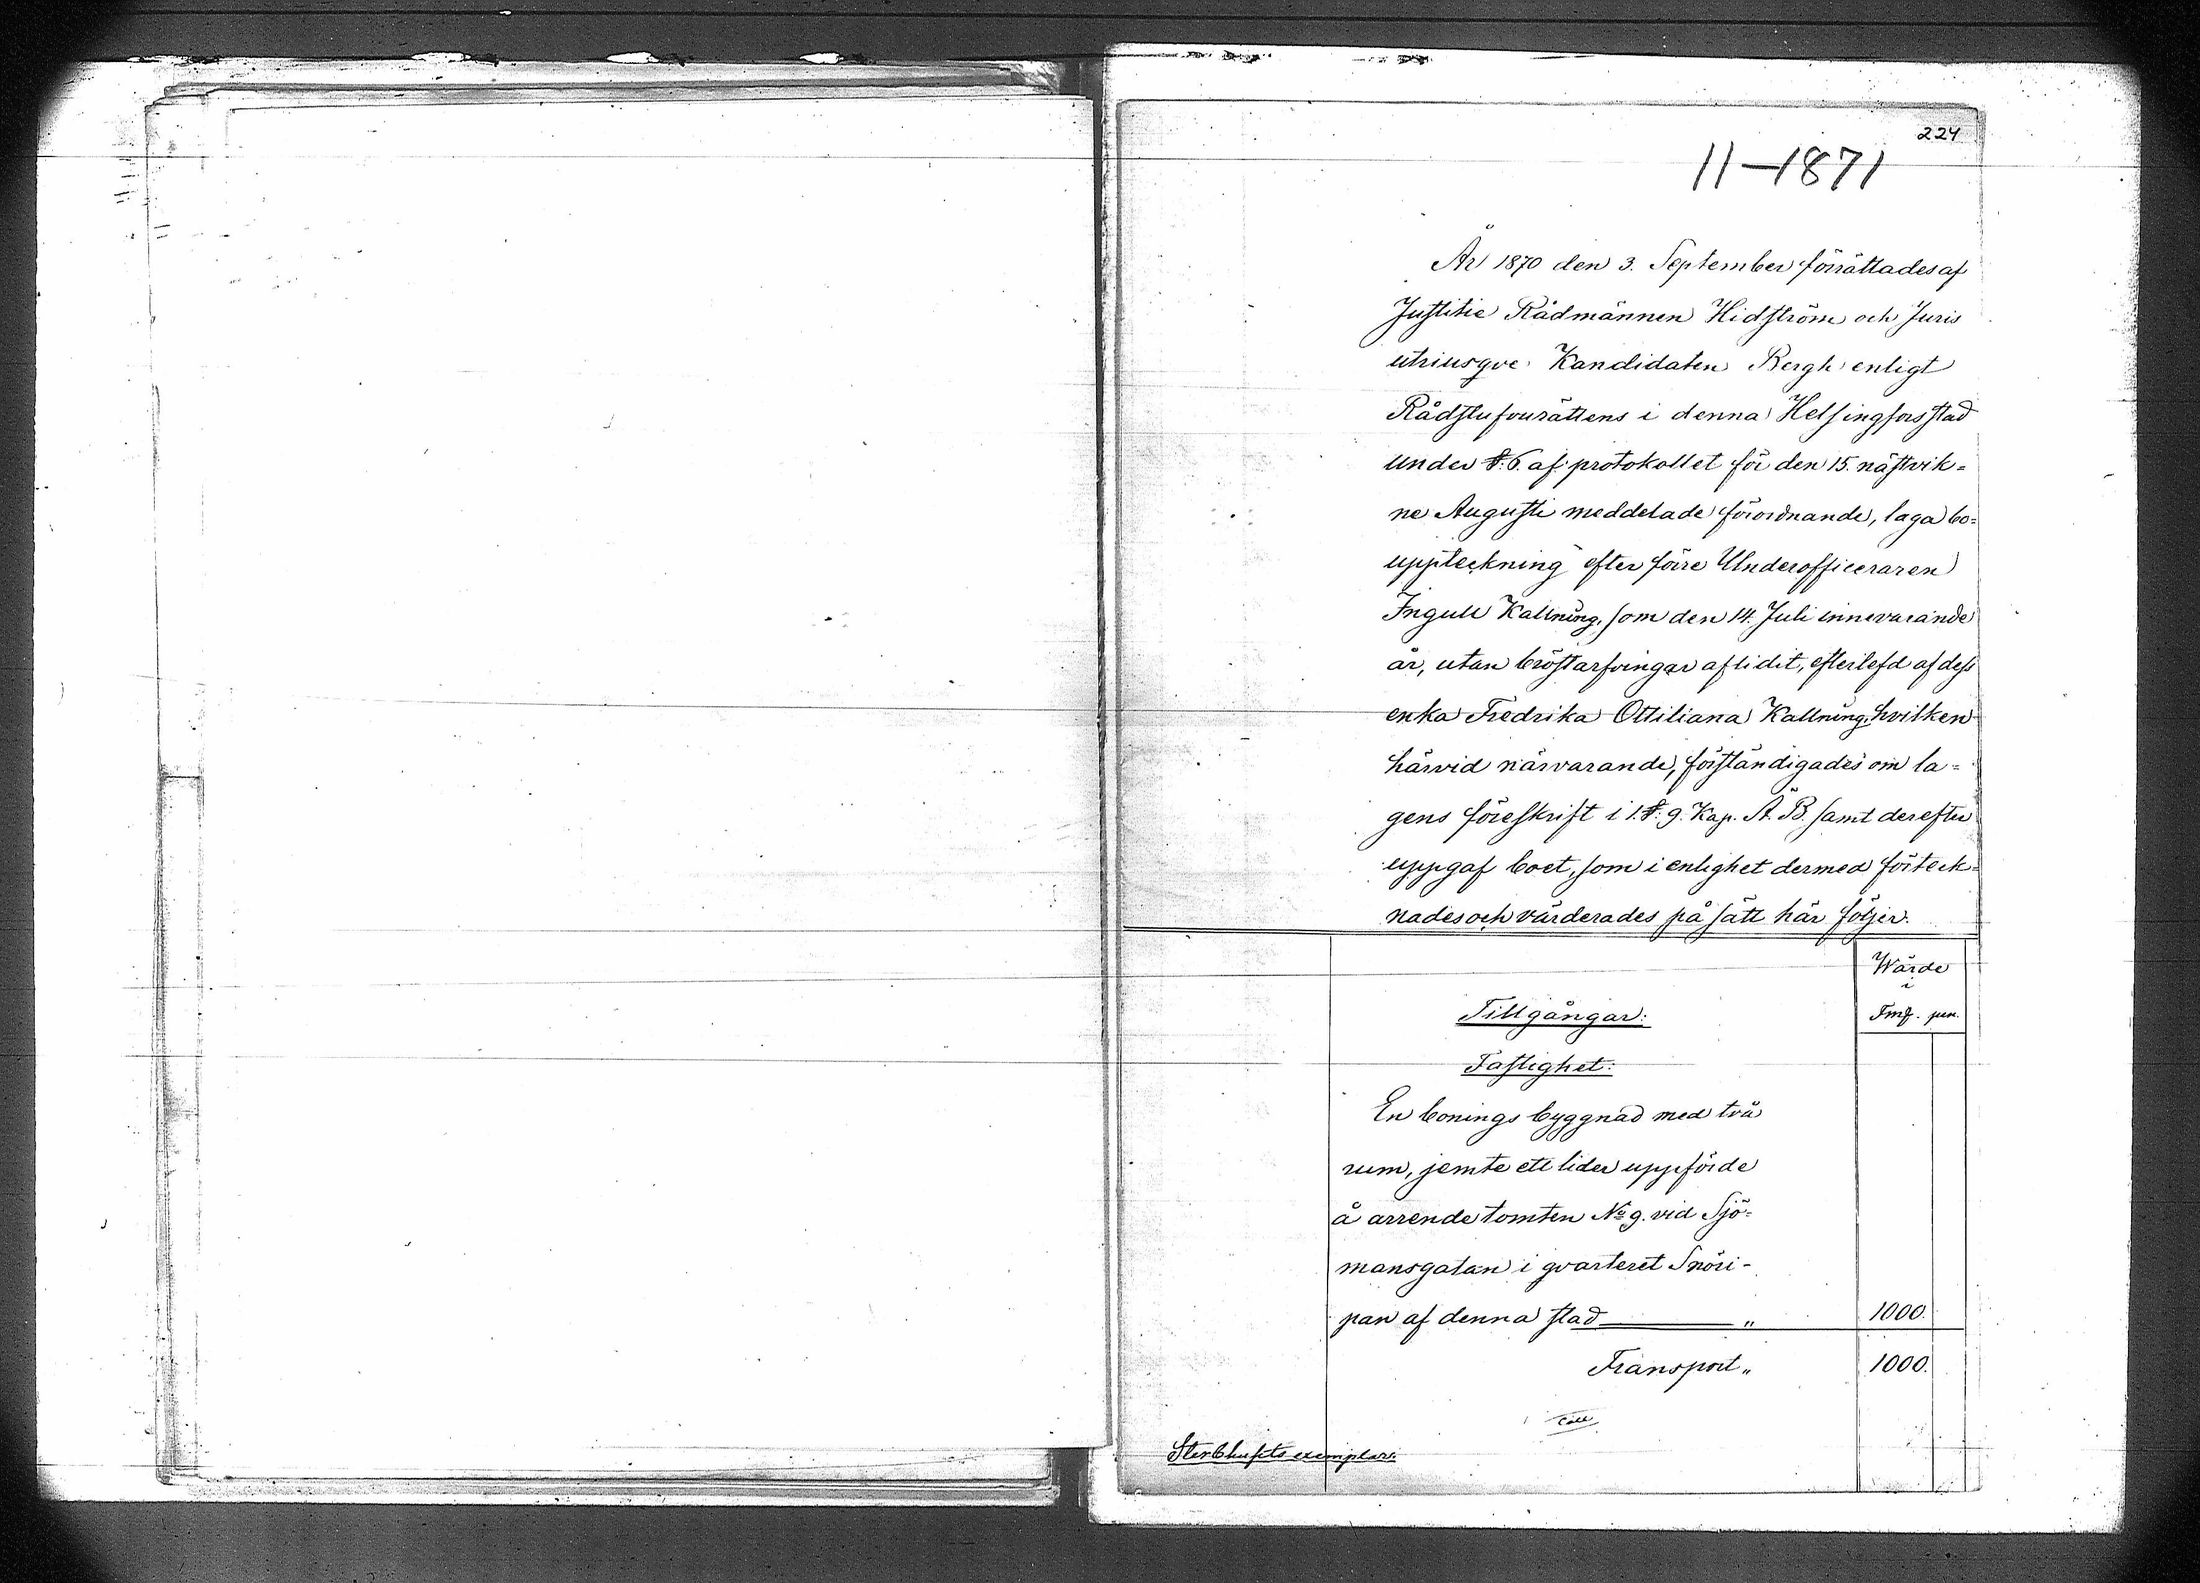 224
11-1871
År 1870 den 3. September förrättades af
Justitie Rådmännen Hidström och Juris
utriusqve Kandidaten Bergh enligt
Rådstufvurättens i denna Helsingfors stad
under §. 6. af protokollet för den 15. nästvik=
ne Augusti meddelade förordnande, laga bo=
uppteckning efter förre Underofficeraren
Ingull Kallning, som den 14. Juli innevarande
år, utan bröstarfvingar aflidit, efterlefd af dess
enka Fredrika Ottiliana Kallning, hvilken
härvid närvarande, förständigades om la=
gens föreskrift i 1. §. 9. Kap. Ä. B. samt derefter
uppgaf boet, som i enlighet dermed förteck=
nades och värderades på sätt här följer.
Wärde
i
Fmk. pen.
Tillgångar:
Fastighet:
En bonings byggnad med två
rum, jemte ett lider uppförde
å arrende tomten No 9. vid Sjö=
mansgatan i qvarteret Snöri-
pan af denna stad " 1000.
Transport " 1000.
Sterbhusets exemplar.